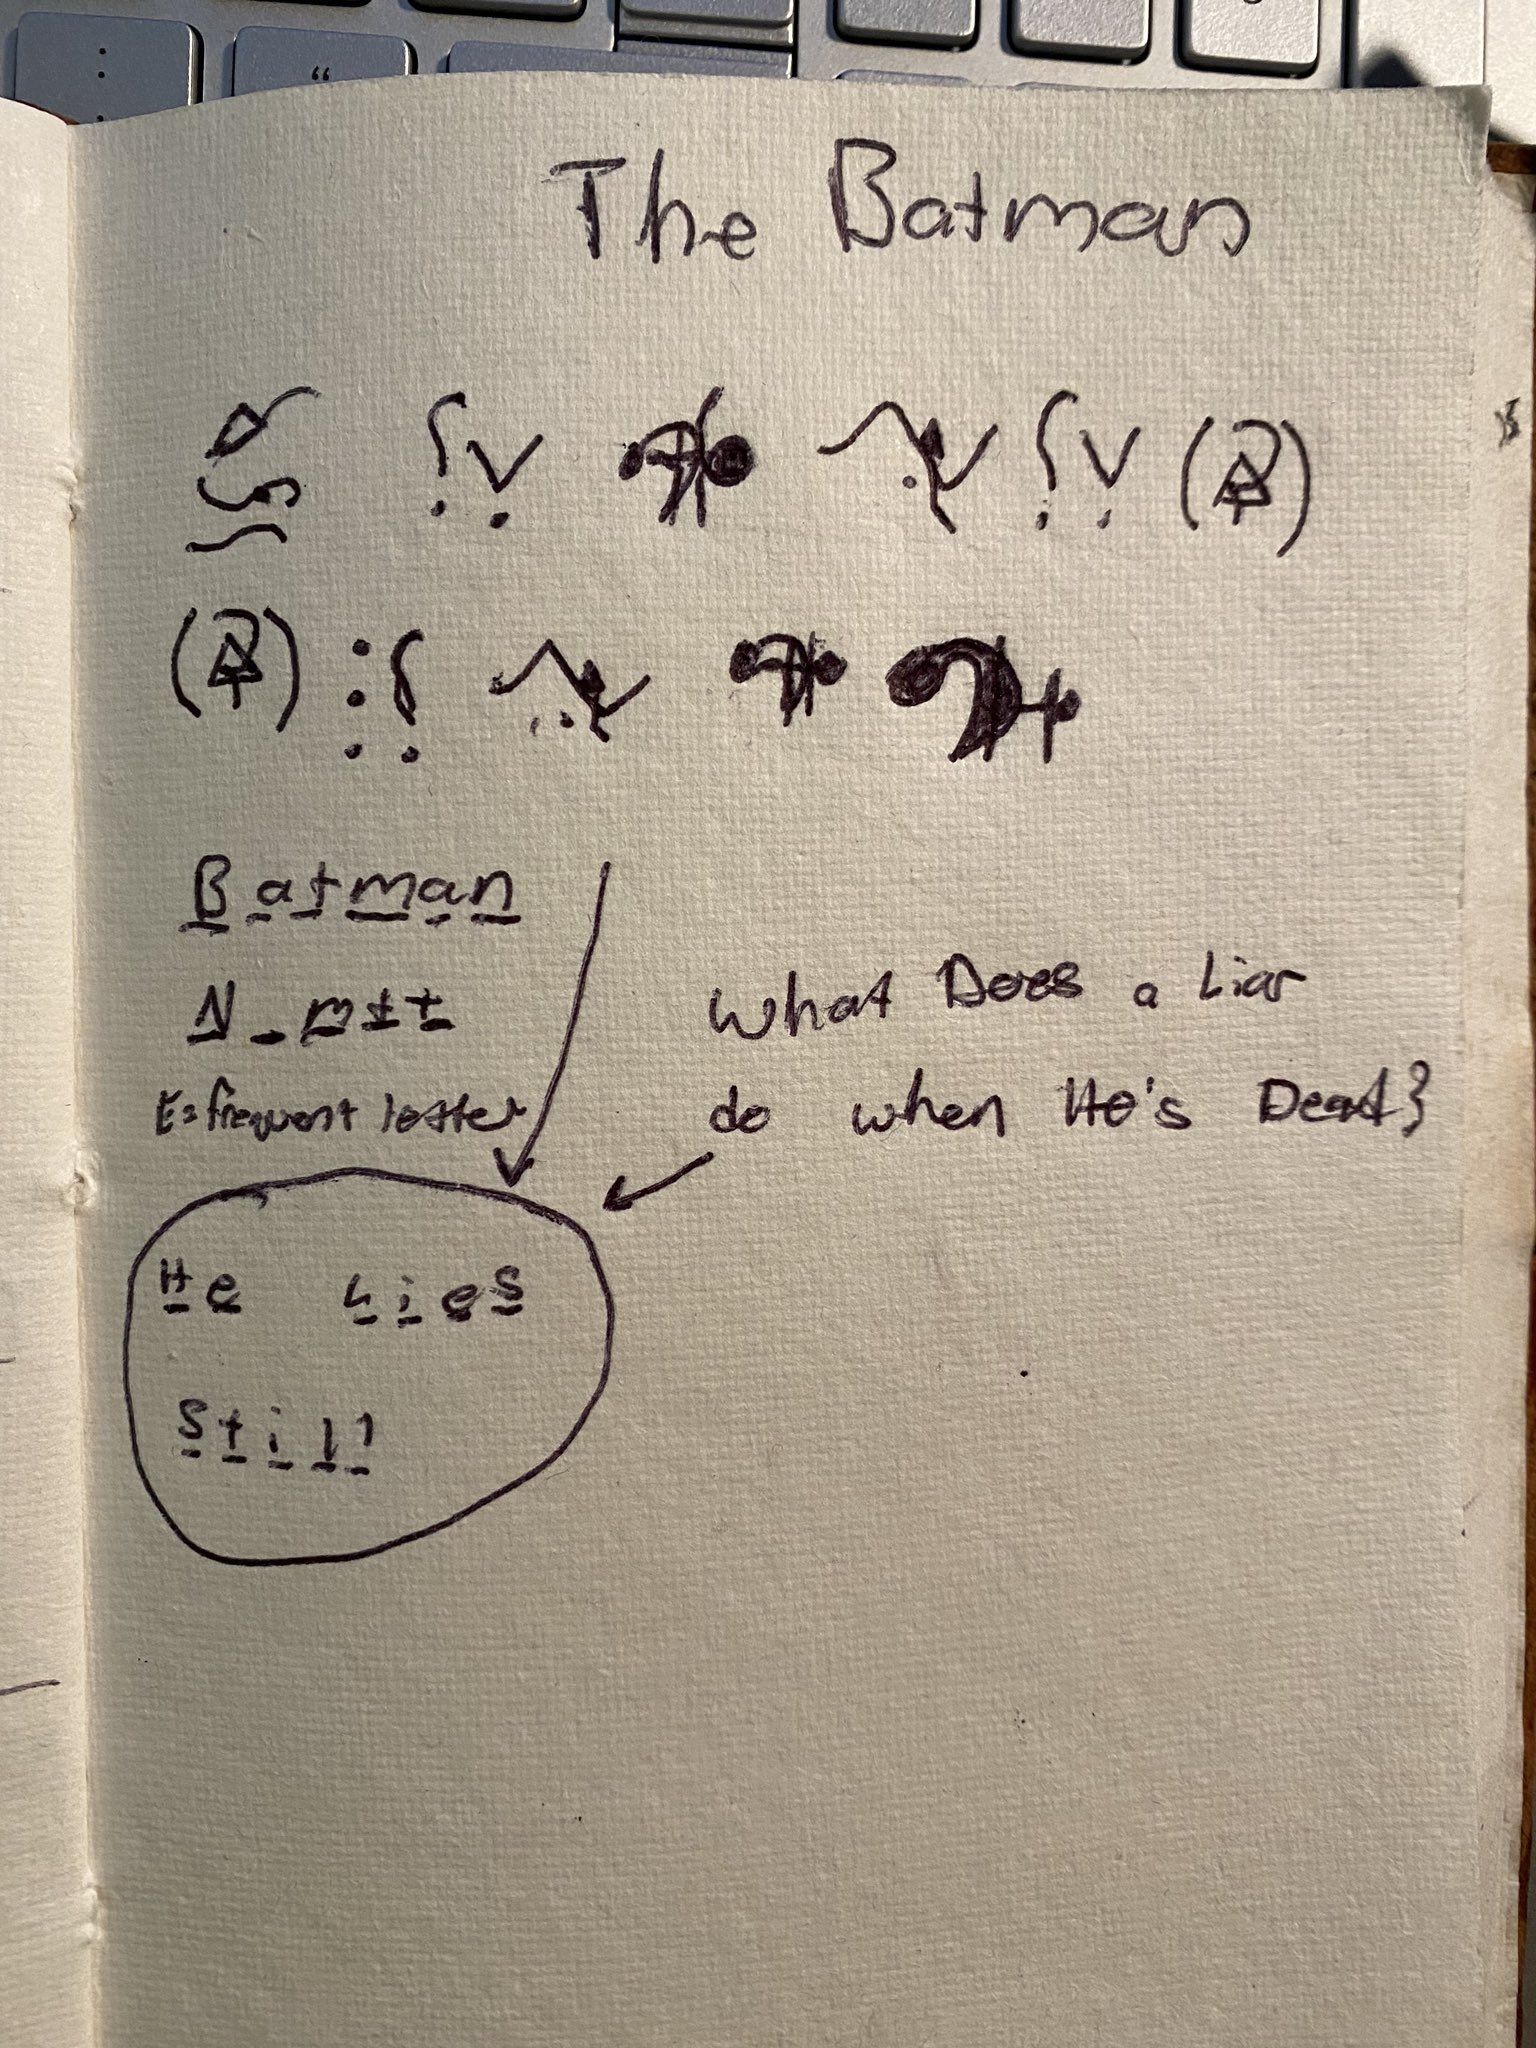 The Batman
Batman
N_mtt
E=frequent letter
What Does a Liar
do when He's Dead?
He Lies
Still